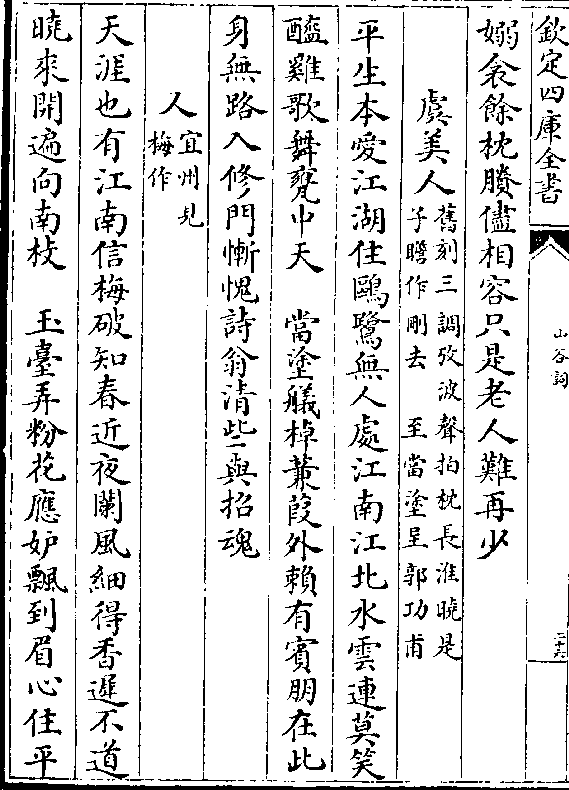 欽定四庫全書
山谷詞
二十六
嫋衾餘枕賸儘相容只是老人難再少
虞美人
舊刻三調攷波聲拍枕長淮曉是
子瞻作刪去　至當塗呈郭功甫
平生本愛江湖住鷗鷺無人處江南江北水雲連莫笑
醯雞歌舞甕中天　當塗艤棹蒹葭外賴有賓朋在此
身無路入修門慚愧詩翁清些與招魂
人
宜州見
梅作
天涯也有江南信梅破知春近夜闌風細得香遲不道
曉來開遍向南枝　玉臺弄粉花應妒飄到眉心住平